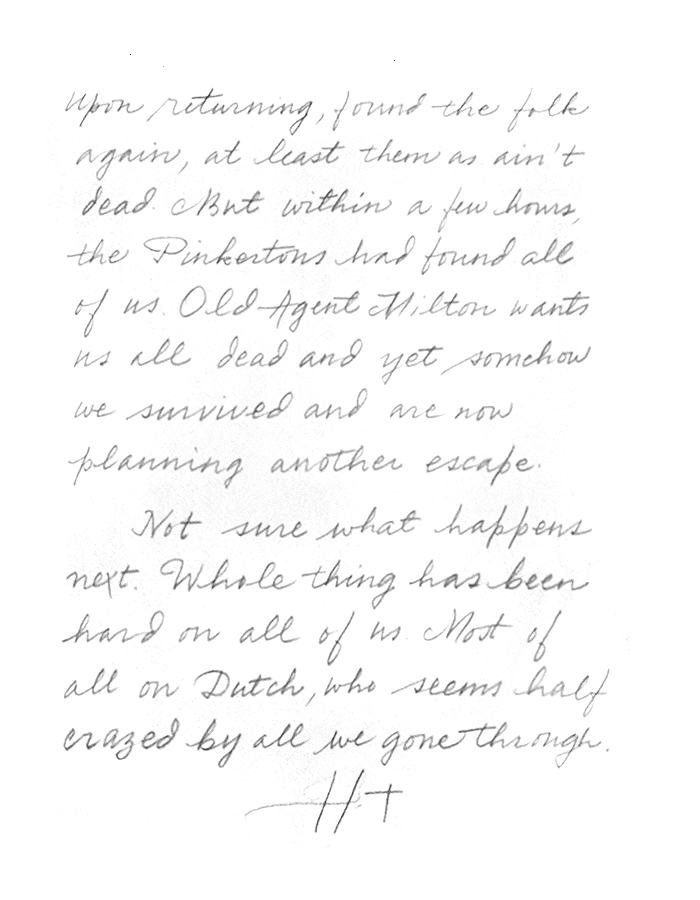 Upon returning, found the folk
again, at least them as ain't
dead. But within a few hours,
the Pinkertons had found all
of us. Old Agent Milton wants
us all dead and yet somehow
we survived and are now
planning another escape.
Not sure what happens
next. Whole thing has been
hard on all of us. Most of
all on Dutch, who seems half
crazed by all we gone through.